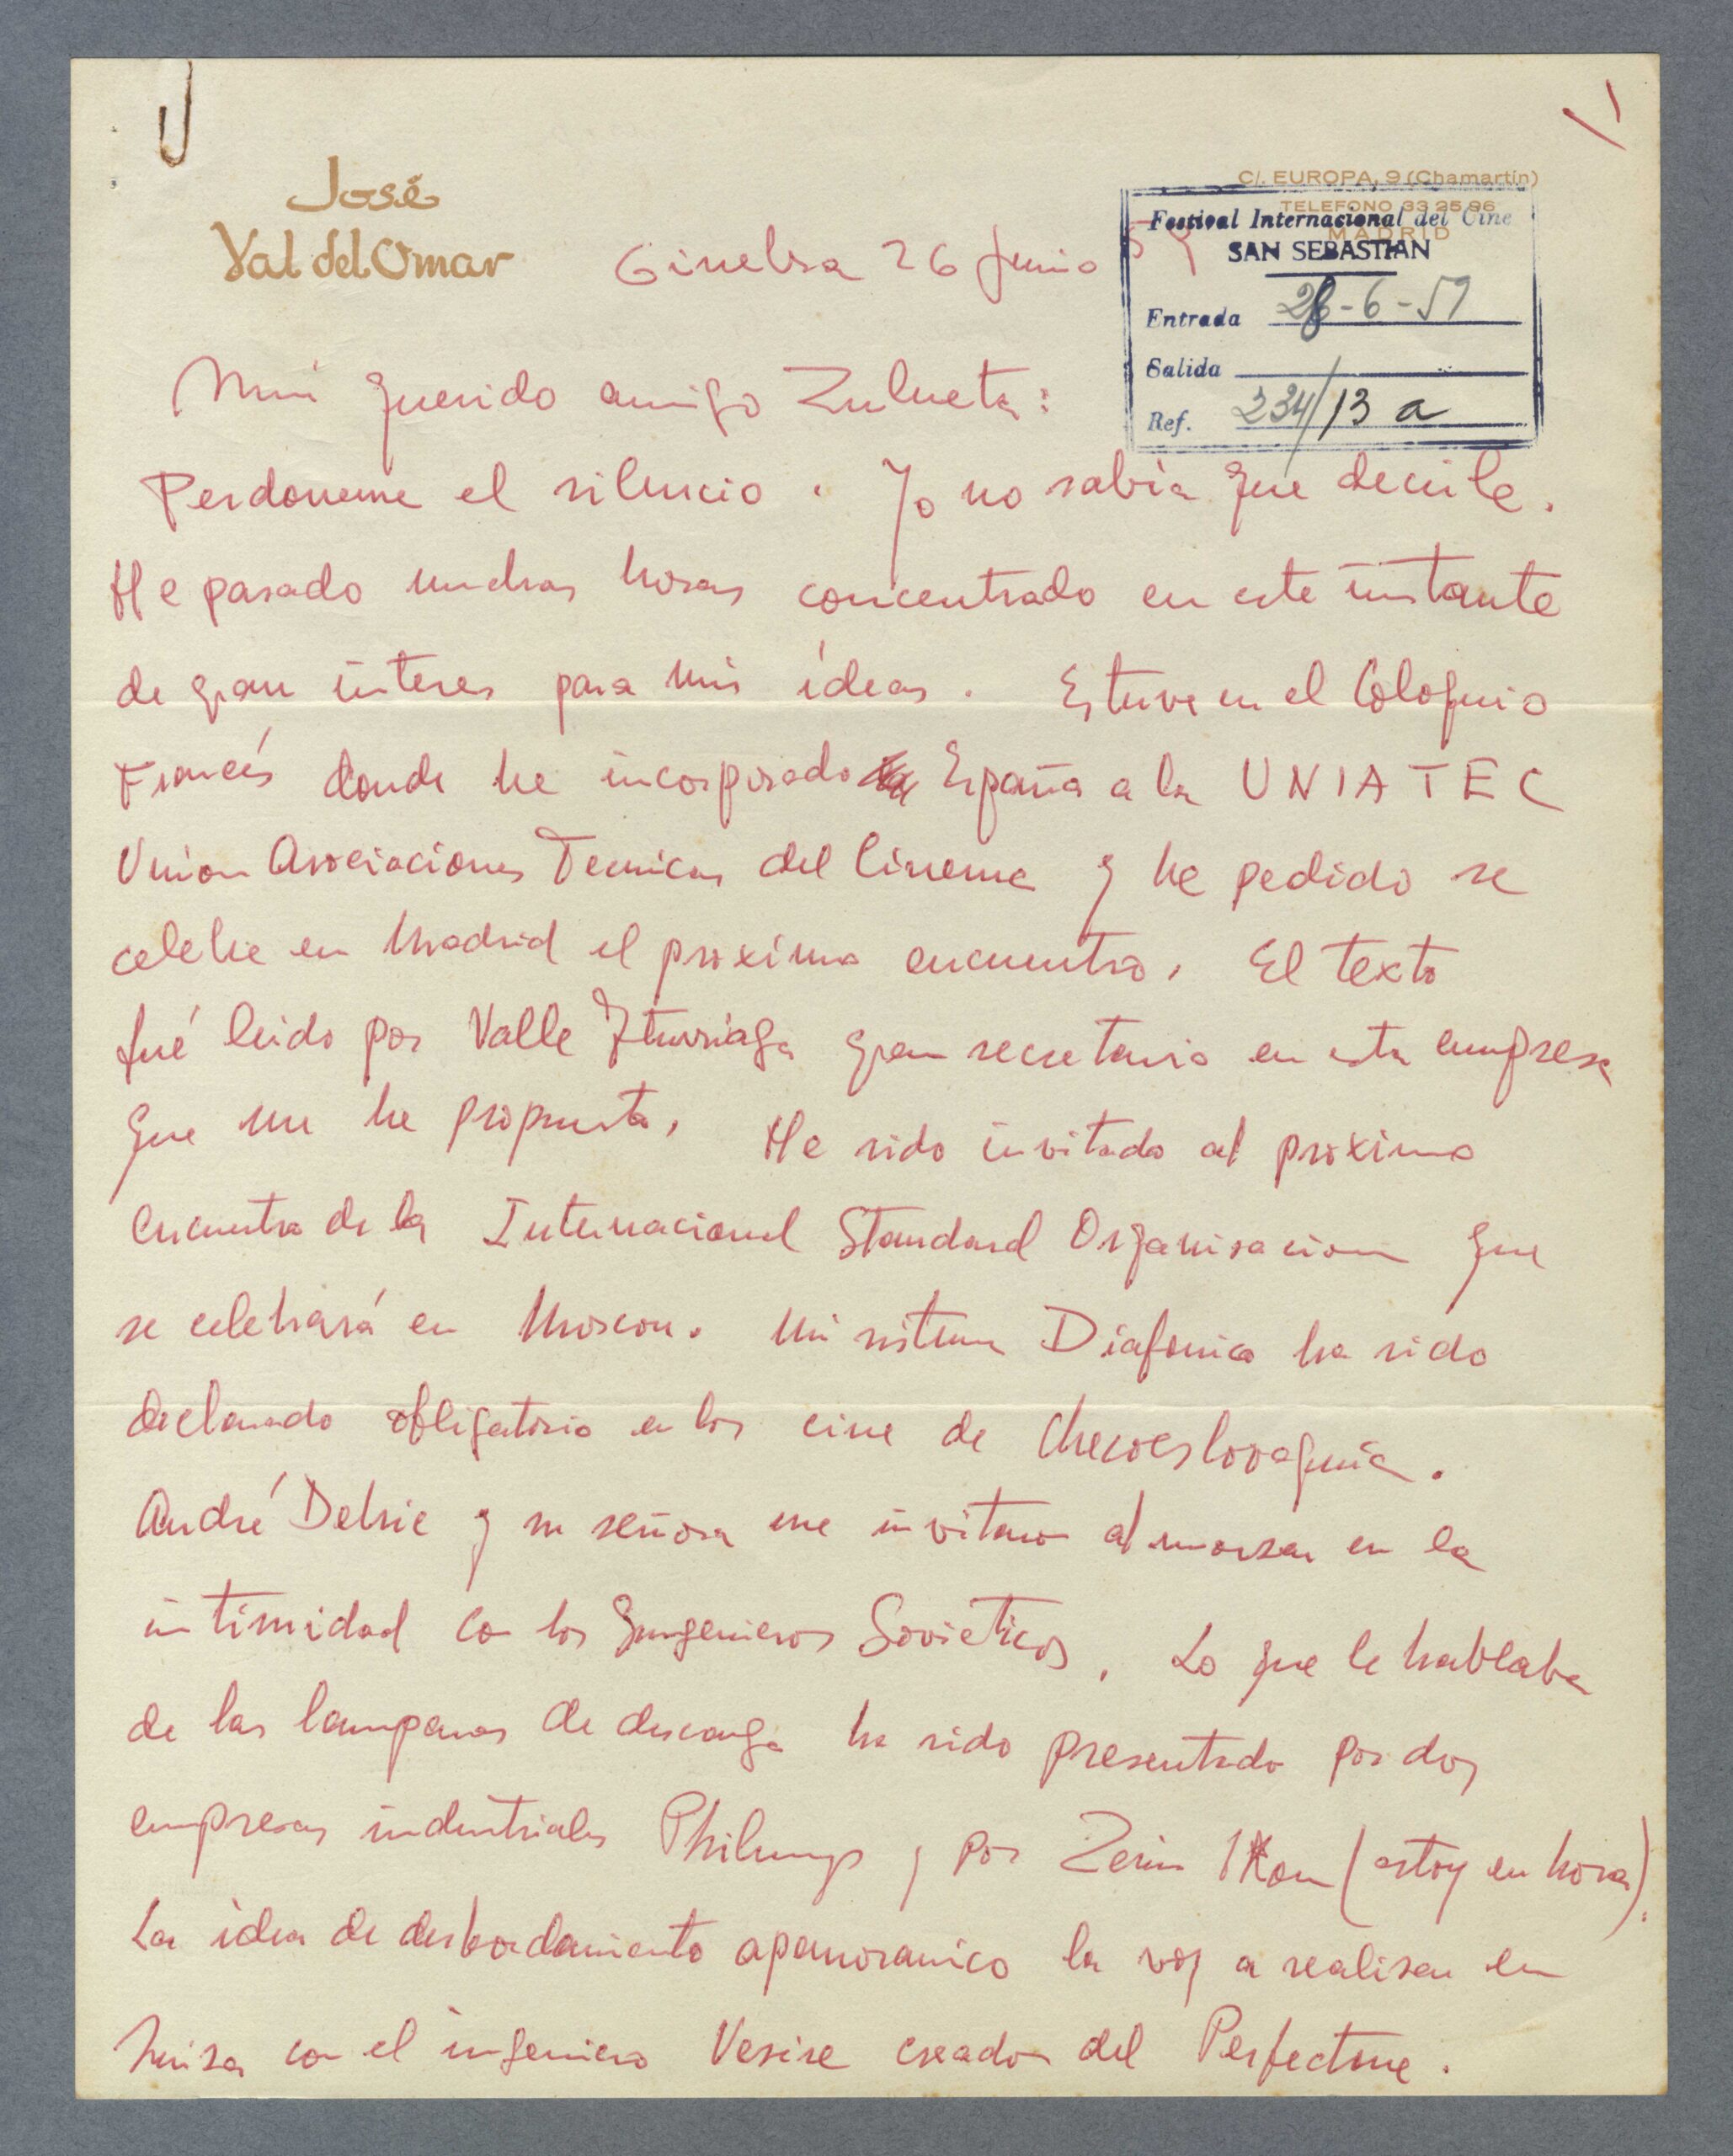 José
Val del Omar
C/. EUROPA, 9 (Chamartín)
TELEFONO 33 25 96
MADRID
Festival Internacional del Cine
SAN SEBASTIAN
Entrada 28-6-59
Salida
Ref. 234/13 a
Ginebra 26 Junio 59
Mui querido amigo Zulueta:
Perdoneme el silencio. Yo no sabía que decirle.
He pasado muchas horas concentrado en este instante
de gran interes para mis ideas. Estuve en el Coloquio
Francés donde he incorporado España a la UNIATEC
Union Asociaciones Tecnicas del Cinema y he pedido se
celebre en Madrid el proximo encuentro. El texto
fué leido por Valle Yturriaga gran secretario en esta empresa
que me he propuesto. He sido invitado al proximo
encuentro de la Internacional Standard Organisacion que
se celebrará en Moscou. Mi sistema Diafonico ha sido
declarado obligatorio en los cine de Checoeslovaquia.
André Debrie y su señora me invitaron almorzar en la
intimidad con los Yngenieros Sovieticos. Lo que le hablaba
de las lamparas de descarga ha sido presentado por dos
empresas industriales y por Zeiss IKon (estoy en hora).
La idea de desbordamiento apanoramico la voy a realisar en
Suiza con el ingeniero creador del Perfectone.